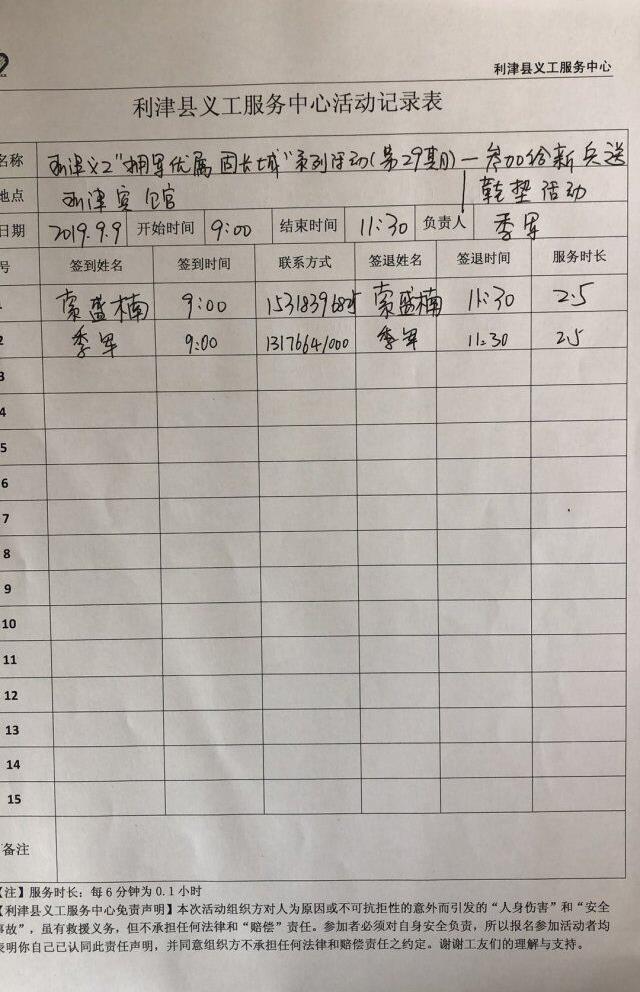 利津县义工服务中心
利津县义工服务中心活动记录表
名称 利津义工"拥军优属 固长城"系列活动(第29期)—参加给新兵送
鞋垫活动
地点 利津宾馆
日期 2019.9.9 开始时间 9:00 结束时间 11:30 负责人 季军
号 签到姓名 签到时间 联系方式 签退姓名 签退时间 服务时长
1 索盛楠 9:00 索盛楠 11:30 2.5
2 季军 9:00 13176641000 季军 11:30 2.5
3
4
5
6
7
8
9
10
11
12
13
14
15
备注
【注】服务时长：每6分钟为0.1小时
【利津县义工服务中心免责声明】本次活动组织方对人为原因或不可抗拒性的意外而引发的“人身伤害”和“安全
事故”，虽有救援义务，但不承担任何法律和“赔偿”责任。参加者必须对自身安全负责，所以报名参加活动者均
表明你自己己认同此责任声明，并同意组织方不承担任何法律和赔偿责任之约定。谢谢工友们的理解与支持。